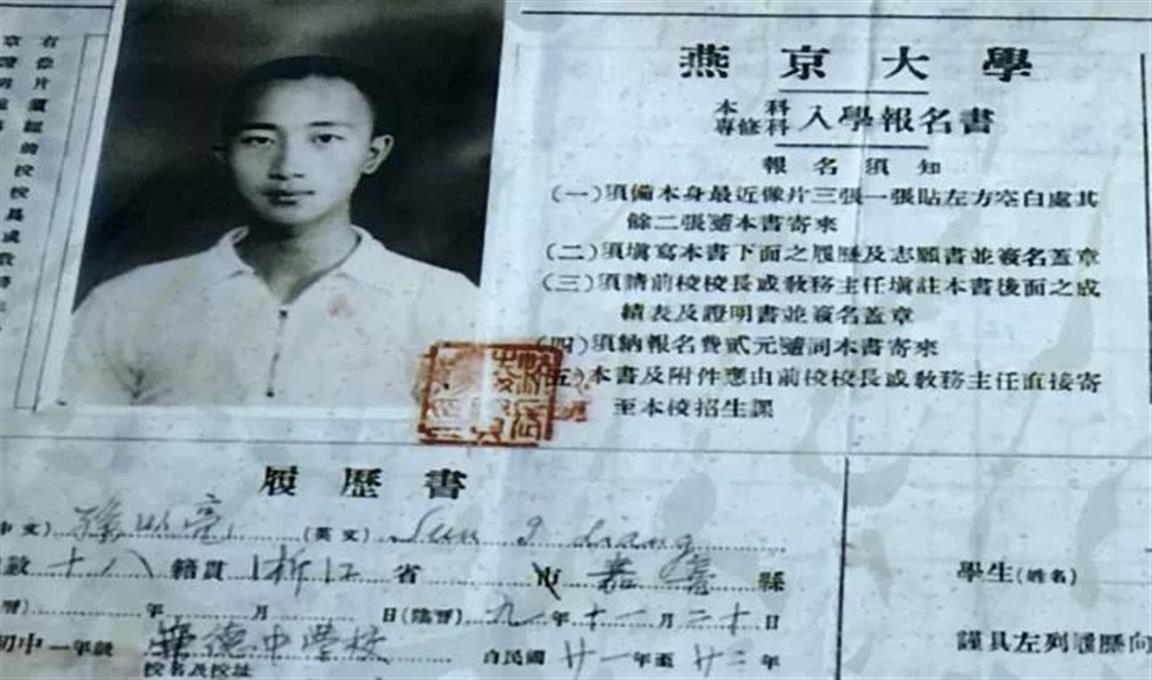 燕京大學
本科
專修科
入學報名書
報名須知
(一)須備本身最近像片三張一張貼左方空白處其
餘二張隨本書寄來
(二)須填寫本書下面之履歷及志願書並簽名蓋章
(三)須請前校校長或教務主任填註本書後面之成
績表及證明書並簽名蓋章
(四)須納報名費貳元隨同本書寄來
(五)本書及附件應由前校校長或教務主任直接寄
至本校招生課
履歷書
中文) 孫以亮 (英文) Sun I liang
歲數 十八 籍貫 浙江 省 市 嘉善 縣
年 月 日(陰曆) 九 年 十一 月 二十 日
初中一年級 德中學校 自民國 廿一 年至 廿二 年
校名及校址
學生(姓名)
謹具左列履歷向